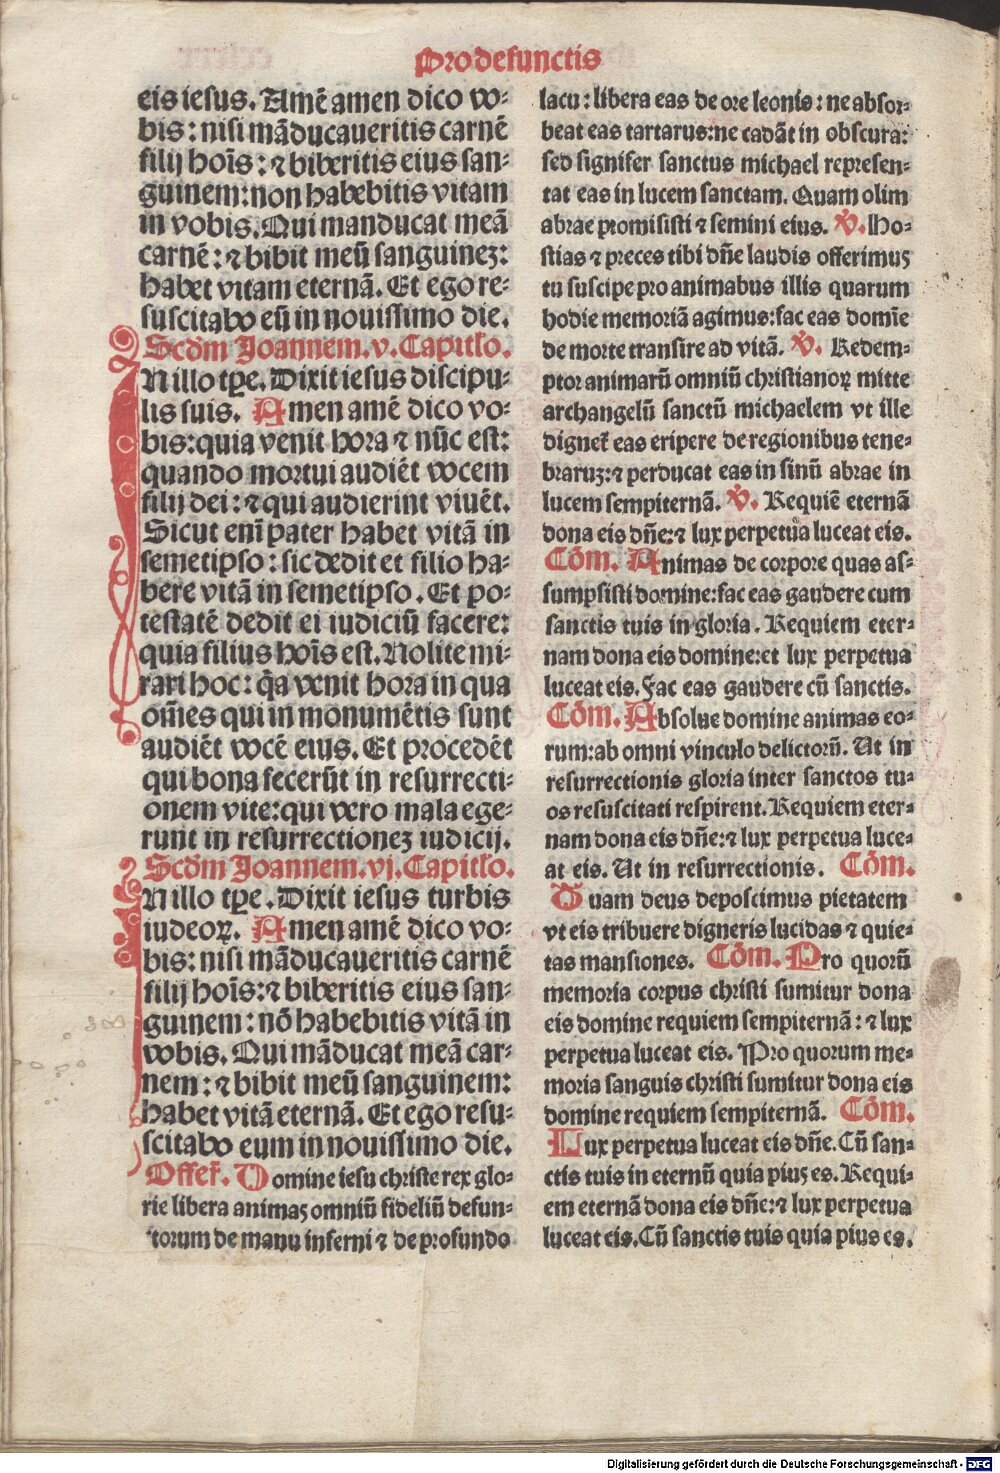 Pro defunctis
eis iesus. Amē amen dico vo-
bis: nisi māducaueritis carnē
filij hoīs: ⁊ biberitis eius san-
guinem: non habebitis vitam
in vobis. Qui manducat meā
carnē: ⁊ bibit meū sanguinez:
habet vitam eternā. Et ego re-
suscitabo eū in nouissimo die.
Scd̄m Joannem. v. Capitlo.
IN illo tpe. Dixit iesus discipu-
lis suis. Amen amē dico vo-
bis: quia venit hora ⁊ nūc est:
quando mortui audiēt vocem
filij dei: ⁊ qui audierint viuēt.
Sicut eni pater habet vitā in
semetipso: sic dedit et filio ha-
bere vitā in semetipso. Et po-
testatē dedit ei iudiciū facere:
quia filius hoīs est. Nolite mi-
rari hoc: q̄a venit hora in qua
om̄es qui in monumētis sunt
audiēt vocē eius. Et procedēt
qui bona fecerūt in resurrecti-
onem vite: qui vero mala ege-
runt in resurrectionez iudicij.
Scd̄m Joannem. vj. Capitlo.
IN illo tpe. Dixit iesus turbis
iudeoꝝ. Amen amē dico vo-
bis: nisi māducaueritis carnē
filij hoīs: ⁊ biberitis eius san-
guinem: nō habebitis vitā in
vobis. Qui māducat meā car-
nem: ⁊ bibit meū sanguinem:
habet vitā eternā. Et ego resu-
scitabo eum in nouissimo die.
Offer̄. Domine iesu christe rex glo-
rie libera animas omniū fideliū defun-
ctorum de manu inferni ⁊ de profundo
lacu: libera eas de ore leonis: ne absor-
beat eas tartarus: ne cadāt in obscura:
sed signifer sanctus michael represen-
tat eas in lucem sanctam. Quam olim
abrae promisisti ⁊ semini eius. ℣. Ho-
stias ⁊ preces tibi dn̄e laudis offerimus
tu suscipe pro animabus illis quarum
hodie memoriā agimus: fac eas domīe
de morte transire ad vitā. ℣. Redem-
ptor animarū omniū christianoꝝ mitte
archangelū sanctū michaelem vt ille
dignet̄ eas eripere de regionibus tene-
braruz: ⁊ perducat eas in sinū abrae in
lucem sempiternā. ℣. Requiē eternā
dona eis dn̄e: ⁊ lux perpetua luceat eis.
Cōm. Animas de corpore quas as-
sumpsisti domine: fac eas gaudere cum
sanctis tuis in gloria. Requiem eter-
nam dona eis domine: et lux perpetua
luceat eis. Fac eas gaudere cū sanctis.
Cōm. Absolue domine animas eo-
rum: ab omni vinculo delictorū. Ut in
resurrectionis gloria inter sanctos tu-
os resuscitati respirent. Requiem eter-
nam dona eis dn̄e: ⁊ lux perpetua luce-
at eis. Ut in resurrectionis. Cōm.
Tuam deus deposcimus pietatem
vt eis tribuere digneris lucidas ⁊ quie-
tas mansiones. Cōm. Pro quorū
memoria corpus christi sumitur dona
eis domine requiem sempiternā: ⁊ lux
perpetua luceat eis. Pro quorum me-
moria sanguis christi sumitur dona eis
domine requiem sempiternā. Cōm.
Lux perpetua luceat eis dn̄e. Cū san-
ctis tuis in eternū quia pius es. Requi-
em eternā dona eis dn̄e: ⁊ lux perpetua
luceat eis. Cū sanctis tuis quia pius es.
Digitalisierung gefördert durch die Deutsche Forschungsgemeinschaft - DFG